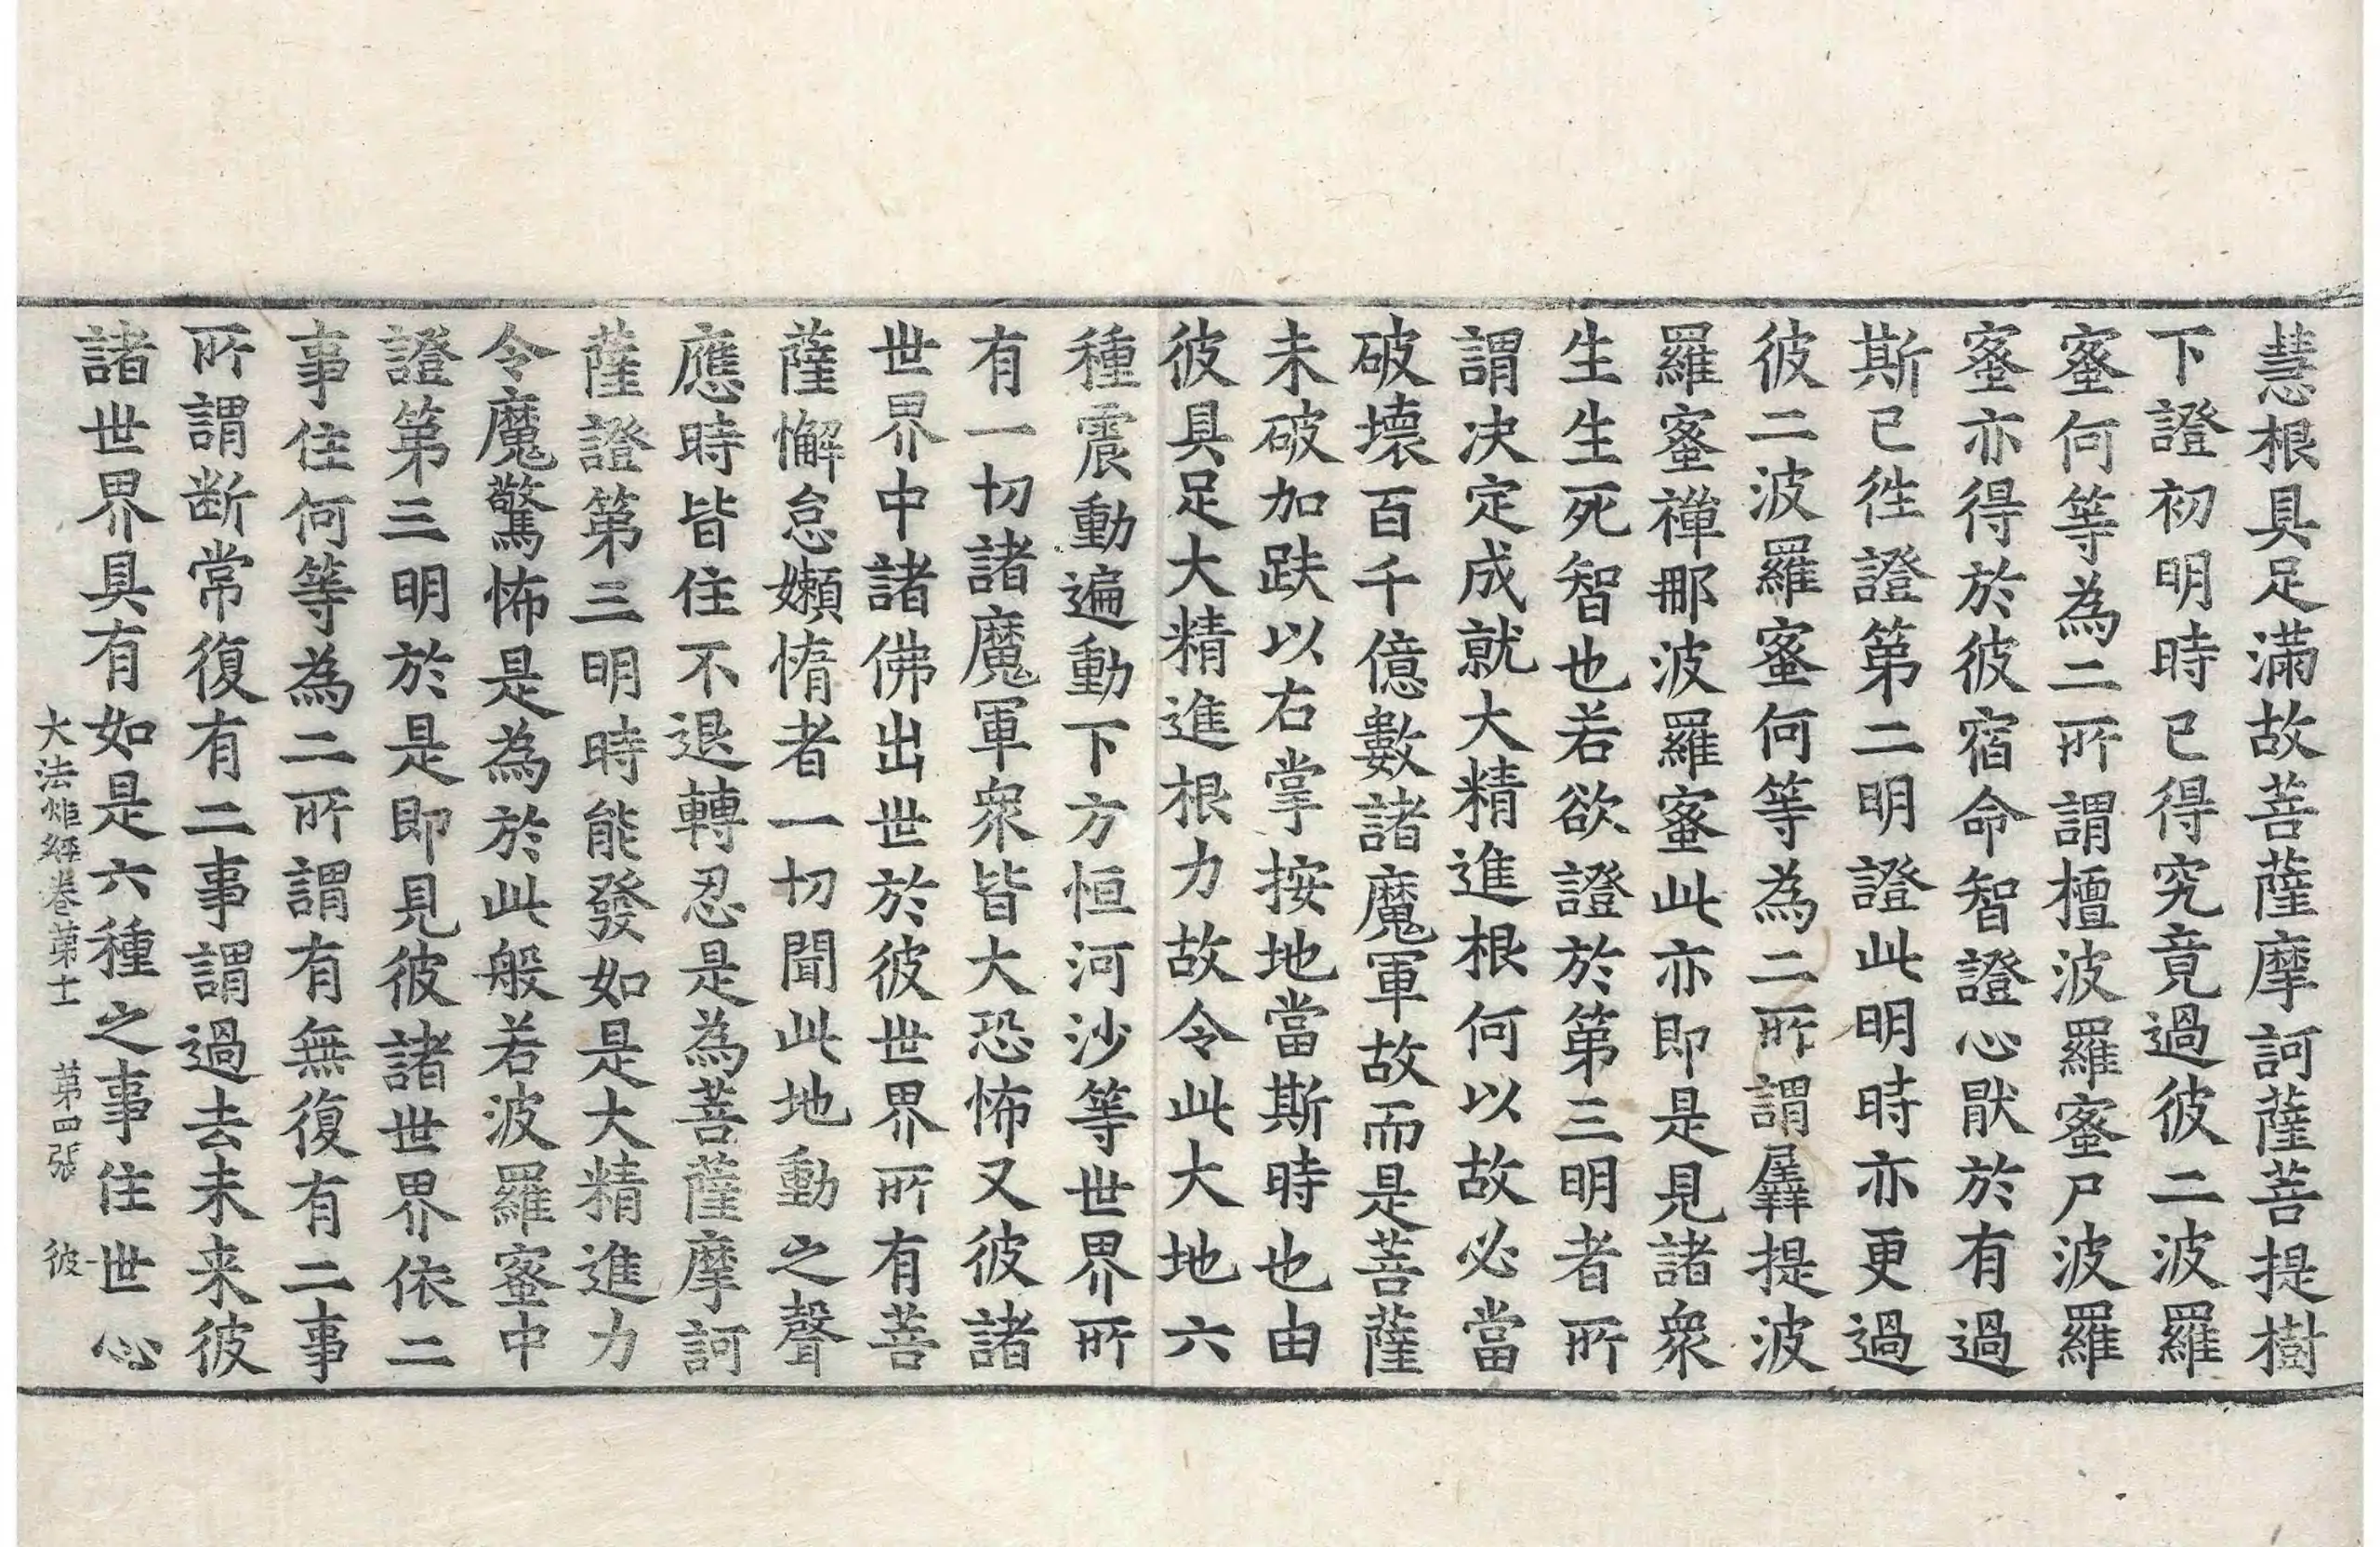 慧根具足滿故菩薩摩訶薩菩提樹
下證初明時已得究竟過彼二波羅
蜜何等為二所謂檀波羅蜜尸波羅
蜜亦得於彼宿命智證心猒於有過
斯已徃證第二明證此明時亦更過
彼二波羅蜜何等為二所謂羼提波
羅蜜禪那波羅蜜此亦即是見諸衆
生生死智也若欲證於第三明者所
謂决定成就大精進根何以故必當
破壞百千億數諸魔軍故而是菩薩
未破加趺以右掌按地當斯時也由
彼具足大精進根力故令此大地六
種震動遍動下方恒河沙等世界所
有一切諸魔軍衆皆大恐怖又彼諸
世界中諸佛出世於彼世界所有菩
薩懈怠嬾惰者一切聞此地動之聲
應時皆住不退轉忍是為菩薩摩訶
薩證第三明時能發如是大精進力
令魔驚怖是為於此般若波羅蜜中
證第三明於是即見彼諸世界依二
事住何等為二所謂有無復有二事
所謂断常復有二事謂過去未来彼
諸世界具有如是六種之事住世心
大法炬經卷第士 第四張 彼